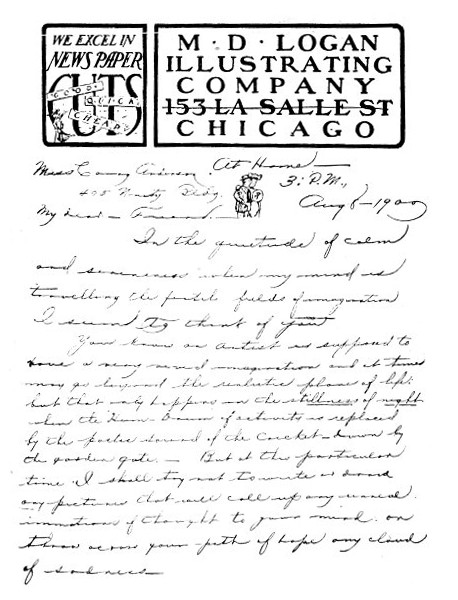 WE EXCEL IN
NEWS PAPER
CUTS
GOOD
QUICK
CHEAP
M · D · LOGAN
ILLUSTRATING
COMPANY
153 LA SALLE ST
CHICAGO
At Home
Miss
3: P.M.,
405 Unity Bldg.
Aug 8 - 1900
My dear - Friend
In the quietude of calm
and sereneness when my mind is
travelling the fertile fields of imagination
I seem to think of you
You know an artist is supposed to
have a very imagination and at times
may go beyond the realistic phase of life:
but that only happens in the stillness of night
when the Hum-Drum of activity is replaced
by the sound of the Cricket - down by
the garden gate. — But at this particular
time I shall try not to write or
any pictures that will call up any
of thought to your mind. or
throw across your path of hope any cloud
of sadness